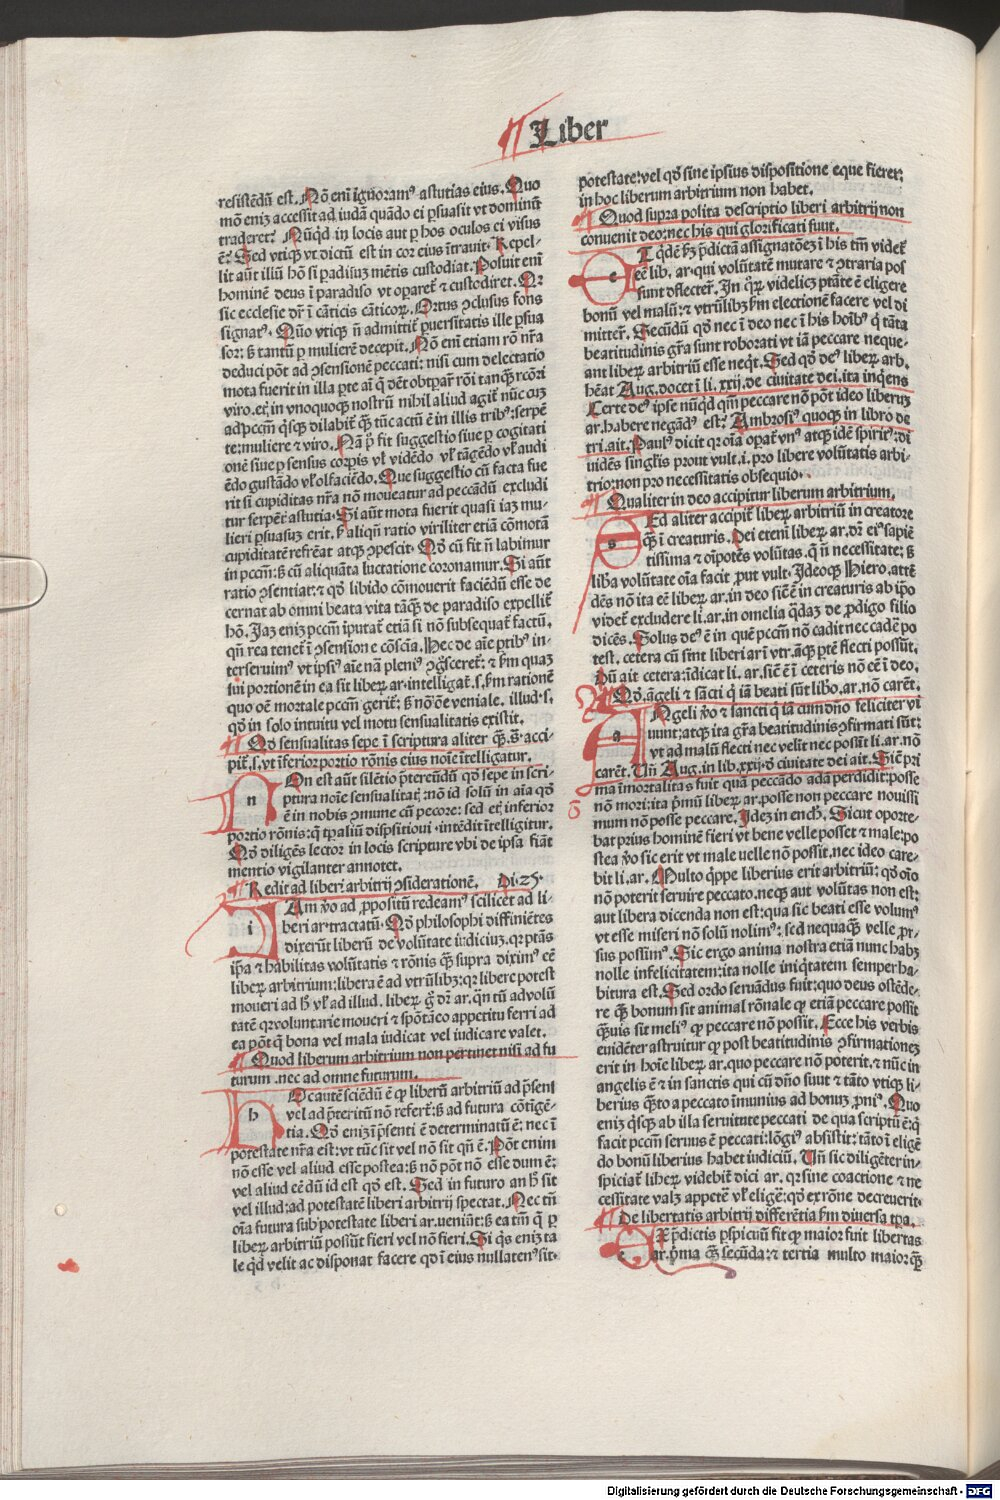 Liber
resistēdū est. Nō eni ignoramꝰ astutias eius. Quo
mō eniz accessit ad iudā quādo ei ꝑsuasit vt dominū
traderet? Nūqd in locis aut ꝑ hos oculos ei visus
ē: Sed vtiqꝫ vt dictū est in cor eius ītrauit. Repel-
lit aūt illū hō si ꝑadisuꝫ mētis custodiat. Posuit enī
hominē deus ī paradiso vt oꝑaret̄ ⁊ custodiret. Or
sic ecclesie dr̄ ī cāticis cāticoꝝ. Ortus ꝯclusus fons
signatꝰ. Quo vtiqꝫ n̄ admittit̄ ꝑuersitatis ille ꝑsua
sor: ꝫ tantū ꝑ mulierē decepit. Nō enī etiam rō nr̄a
deduci pōt ad ꝯsensionē peccati: nisi cum delectatio
mota fuerit in illa ꝑte aī q̄ dēt obtꝑar̄ rōi tanqꝫ rcōri
viro. etꝫ in vnoquoqꝫ nostrū nihil aliud agit̄ nūc cuꝫ
ad pccm̄ q̄sqꝫ dilabit̄ qꝫ tūc actū ē in illis tribꝰ: serpē
te: muliere ⁊ viro. Nā pͥ fit suggestio siue ꝑ cogitati
onē siue ꝑ sensus corꝑis vl̓ vidēdo vl̓ tāgēdo vl̓ audi
ēdo gustādo vl̓ olfaciēdo. Que suggestio cū facta fue
rit si cupiditas nr̄a nō moueatur ad peccādū excludi
tur serpēt̄ astutia. Si aūt mota fuerit quasi iaꝫ mu-
lieri ꝑsuasuꝫ erit. ꝫ aliqn̄ ratio viriliter etiā cōmotā
cupiditatē refrēat atqꝫ ꝯpescit. Qd̓ cū fit n̄ labimur
in pccm̄: ꝫ cū aliquāta luctatione coronamur. Si aūt
ratio ꝯsentiat: ⁊ qd̓ libido cōmouerit faciēdū esse de
cernat ab omni beata vita tāqꝫ de paradiso expellit̄
hō. Iaꝫ eniz pccm̄ īputat̄ etiā si nō subsequat̄ factū.
qn̄ rea tenet̄ ī ꝯsensione cōscīa. Hec de aīe ꝑtibꝰ in-
terseruimꝰ vt ipsiꝰ aīe nā pleniꝰ ꝯgͦsceret̄: ⁊ ẜm quaꝫ
sui portionē in ea sit libeꝝ ar. intelligat̄. s. ẜm rationē
quo oē mortale pccm̄ gerit̄: ꝫ nō oē veniale. illud. s.
qd̓ in solo intuitu vel motu sensualitatis existit.
Qd̓ sensualitas sepe ī scriptura aliter qꝫ. s̄. acci-
pit̄. s. vt īferior portio rōnis eius noīe ītelligatur.
On est aūt silētio p̄tereūdū qd̓ sepe in scri-
ptura noīe sensualitat̄: nō id solū in aīa qd̓
ē in nobis ꝯmune cū pecore: sed etꝫ inferior
portio rōnis: q̄ tꝑaliū dispositioni. intēdit ītelligitur.
Qd̓ diligēs lector in locis scripture vbi de ipsa fiāt
mentio vigilanter annotet.
Redit ad liberi arbitrij ꝯsiderationē. Di. 25
Am ꝟo ad ꝓpositū redeamꝰ scilicet ad li-
beri ar. tractatū. Qd̓ philosophi diffiniētes
dixerūt liberū de volūtate iudiciuꝫ. qꝛ ptās
ip̄a ⁊ habilitas volūtatis ⁊ rōnis qꝫ supra diximꝰ eē
libeꝝ arbitrium: libera ē ad vtrūlibꝫ: qꝛ libere potest
moueri ad h̓ vl̓ ad illud. libeꝝ gͦ dr̄ ar. qn̄tū ad volū
tatē qꝛ voluntarie moueri ⁊ spōtāeo appetitu ferri ad
ea pōt q̄ bona vel mala iudicat vel iudicare valet.
Quod liberum arbitrium non pertinet nisi ad fu
turum. nec ad omne futurum.
Oc autē sciēdū ē ꝙ liberū arbitriū ad p̄sens
vel ad p̄teritū nō refert̄: ꝫ ad futura cōtīgē-
tia. Qd̓ eniz ī p̄senti ē determinatū ē: nec ī
potestate nr̄a est: vt tūc sit vel nō sit qn̄ ē. Pōt enim
nō esse vel aliud esse postea: ꝫ nō pōt nō esse dum ē:
vel aliud eē dū id est qd̓ est. Sed in futuro an h̓ sit
vel illud: ad potestatē liberi arbitrij spectat. Nec tn̄
oīa futura sub potestate liberi ar. veniūt: ꝫ ea tm̄ q̄ ꝑ
libeꝝ arbitriū possūt fieri vel nō fieri. Si qͥs eniꝫ ta
le qͥd velit ac disponat facere qd̓ ī eius nullatenꝰ sit.
potestate: vel qd̓ sine ipsius dispositione eque fieret:
in hoc liberum arbitrium non habet.
Quod supra posita descriptio liberi arbitrij non
conuenit deo: nec his qui glorificati sunt.
T qͥdē ẜm p̄dictā assignatōeꝫ ī his tm̄ videt̄
eē lib. ar. qui volūtatē mutare ⁊ ꝯtraria pos
sunt deflecter̄. In qͦꝝ videlicꝫ ptāte ē eligere
bonū vel malū: ⁊ vtrūlibꝫ ẜm electionē facere vel di
mitter̄. Secūdū qd̓ nec ī deo nec ī his hoībꝰ qͥ tāta
beatitudinis gr̄a sunt roborati vt iā peccare neque-
ant libeꝝ arbitriū esse neqͥt. Sed qd̓ deꝰ libeꝝ arb.
hēat Aug. docet ī li. xxij. de ciuitate dei. ita inqͥens
Certe deꝰ ipse nūqͥd qm̄ peccare nō pōt ideo liberuꝫ
ar. habere negādꝰ est? Ambrosiꝰ quoqꝫ in libro de
tri. ait. Paulꝰ dicit qꝛ oīa oꝑat̄ vnꝰ atqꝫ idē spiritꝰ: di
uidēs singl̓is prout vult. i. pro libere volūtatis arbi-
trio: non pro necessitatis obsequio.
Qualiter in deo accipitur liberum arbitrium.
Ed aliter accipit̄ libeꝝ arbitriū in creatore
qꝫ ī creaturis. Dei eteni libeꝝ ar. dr̄ eiꝰ sapiē
tissima ⁊ oīpotēs volūtas. q̄ n̄ necessitate: ꝫ
libͣa volūtate oīa facit ꝓut vult. Ideoqꝫ Hiero. attē
dēs nō ita eē libeꝝ ar. in deo sicē ē in creaturis ab ip̄o
videt̄ excludere li. ar. in omelia q̄daꝫ de ꝓdigo filio
dicēs. Solus deꝰ ē in quē pccm̄ nō cadit nec cadē po
test. cetera cū sint liberi ar ī vtr. atqꝫ ꝑtē flecti possūt.
Dū ait cetera: īdicat li. ar. sic ē ī ceteris nō eē ī deo.
Qd̓ āgeli ⁊ sācti qͥ iā beati sūt libͦo. ar. nō carēt.
Ngeli ꝟo ⁊ sancti qͥ iā cum dn̄o feliciter vi
uunt: atqꝫ ita gr̄a beatitudinis ꝯfirmati sūt:
vt ad malū flecti nec velit nec possūt li. ar. nō
carēt. Un̄ Aug. in lib. xxij. d̓ ciuitate dei ait. Sic pri
ma īmortalitas fuit quā peccādo adā perdidit: posse
nō mori: ita pͥmū libeꝝ ar. posse non peccare nouissi
mum nō posse peccare. Ideꝫ in ench. Sicut oporte-
bat prius hominē fieri vt bene velle posset ⁊ male: po
stea ꝟo sic erit vt male uelle nō possit. nec ideo care-
bit li. ar. Multo qͥppe liberius erit arbitriū: qd̓ oīo
nō poterit seruire peccato. neqꝫ aut volūtas non est:
aut libera dicenda non est: qua sic beati esse volumꝰ
vt esse miseri nō solū nolimꝰ: sed nequaqꝫ velle ꝓr-
sus possimꝰ. Sic ergo anima nostra etiā nunc habꝫ
nolle infelicitatem: ita nolle iniqͥtatem semper ha-
bitura est. Sed ordo seruādus fuit: quo deus ostēde-
re qꝫ bonum sit animal rōnale ꝙ etiam peccare possit
qꝫuis sit meliꝰ ꝙ peccare nō possit. Ecce his verbis
euidēter astruitur ꝙ post beatitudinis ꝯfirmationeꝫ
erit in hoīe libeꝝ ar. quo peccare nō poterit. ⁊ nūc in
angelis ē ⁊ in sanctis qui cū dn̄o sunt ⁊ tāto vtiqꝫ li-
berius qꝫto a peccato īmunius ad bonuꝫ ꝓniꝰ. Quo
eniꝫ qͥsqꝫ ab illa seruitute peccati de qua scriptū ē: q̄
facit pccm̄ seruus ē peccati: lōgiꝰ absistit: tāto ī eligē
do bonū liberius habet iudiciū. Un̄ sic diligēter in-
spiciat̄ libeꝝ videbit̄ dici ar. qꝛ sine coactione ⁊ ne
cessitate valꝫ appetē vl̓ eligē: qd̓ ex rōne decreuerit.
De libertatis arbitrij differētia ẜm diuersa tꝑa.
X p̄dictis ꝑspicuū fit ꝙ maior fuit libertas
ar. pͥma qꝫ secūda: ⁊ tertia multo maior qꝫ
Digitalisierung gefördert durch die Deutsche Forschungsgemeinschaft - DFG